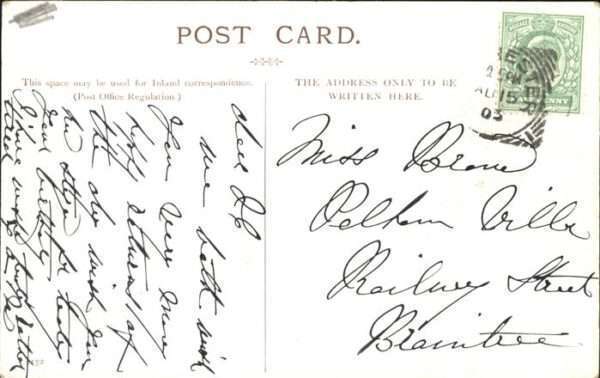 POST CARD.
This space may be used for Inland correspondence.
(Post Office Regulation)
THE ADDRESS ONLY TO BE
WRITTEN HERE.
15
03
PENNY
Miss Brown
Pelham Villa
Railway Street
Braintree
dear
we both wish
you very many
happy returns of
the day wish
for
I have